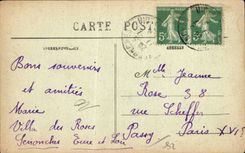 CARTE POST
5c 5c
ADRESSE
Bons souvenirs
et amitiés
Marie
Villa des Roses
Senonches Eure et Loir
Melle Jeanne
Rose 38
rue Scheffer
Passy Paris XVI